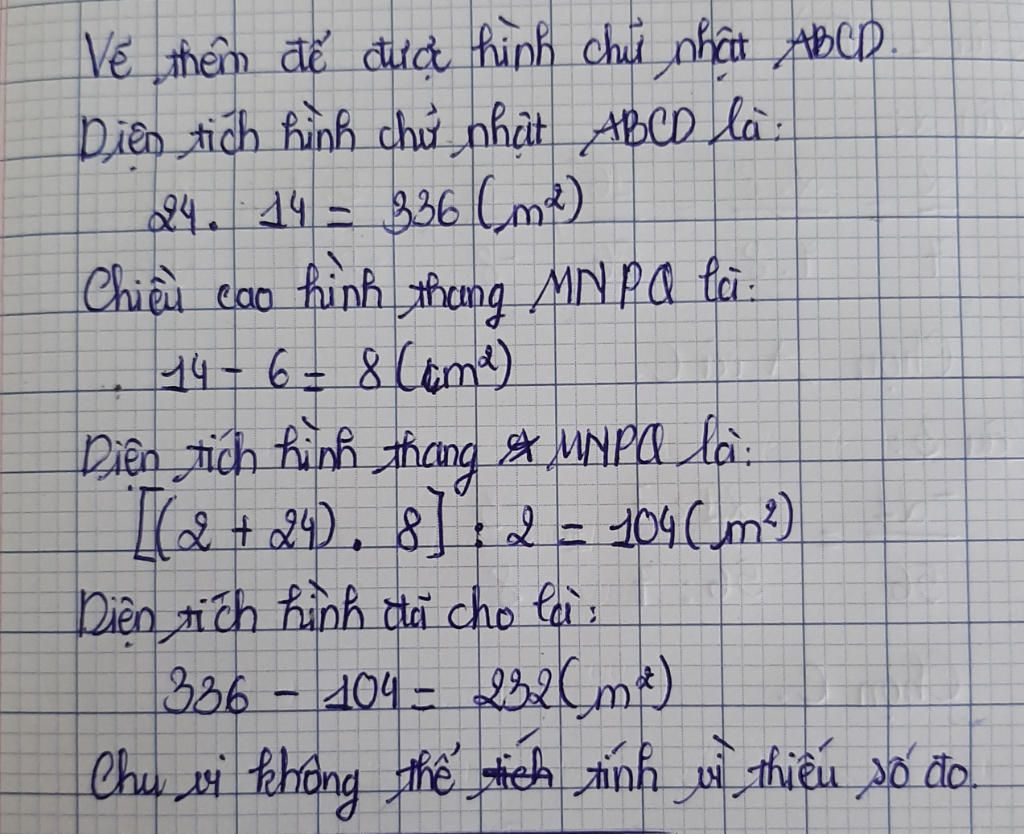 Vẽ thêm để được hình chữ nhật ABCD.
Diện tích hình chữ nhật ABCD là:
24. 14 = 336 (m²)
Chiều cao hình thang MNPQ là:
14 - 6 = 8 (m²)
Diện tích hình thang MNPQ là:
[(2 + 24) . 8] : 2 = 104 (m²)
Diện tích hình đã cho là:
336 - 104 = 232 (m²)
Chu vi không thể tính vì thiếu số đo.